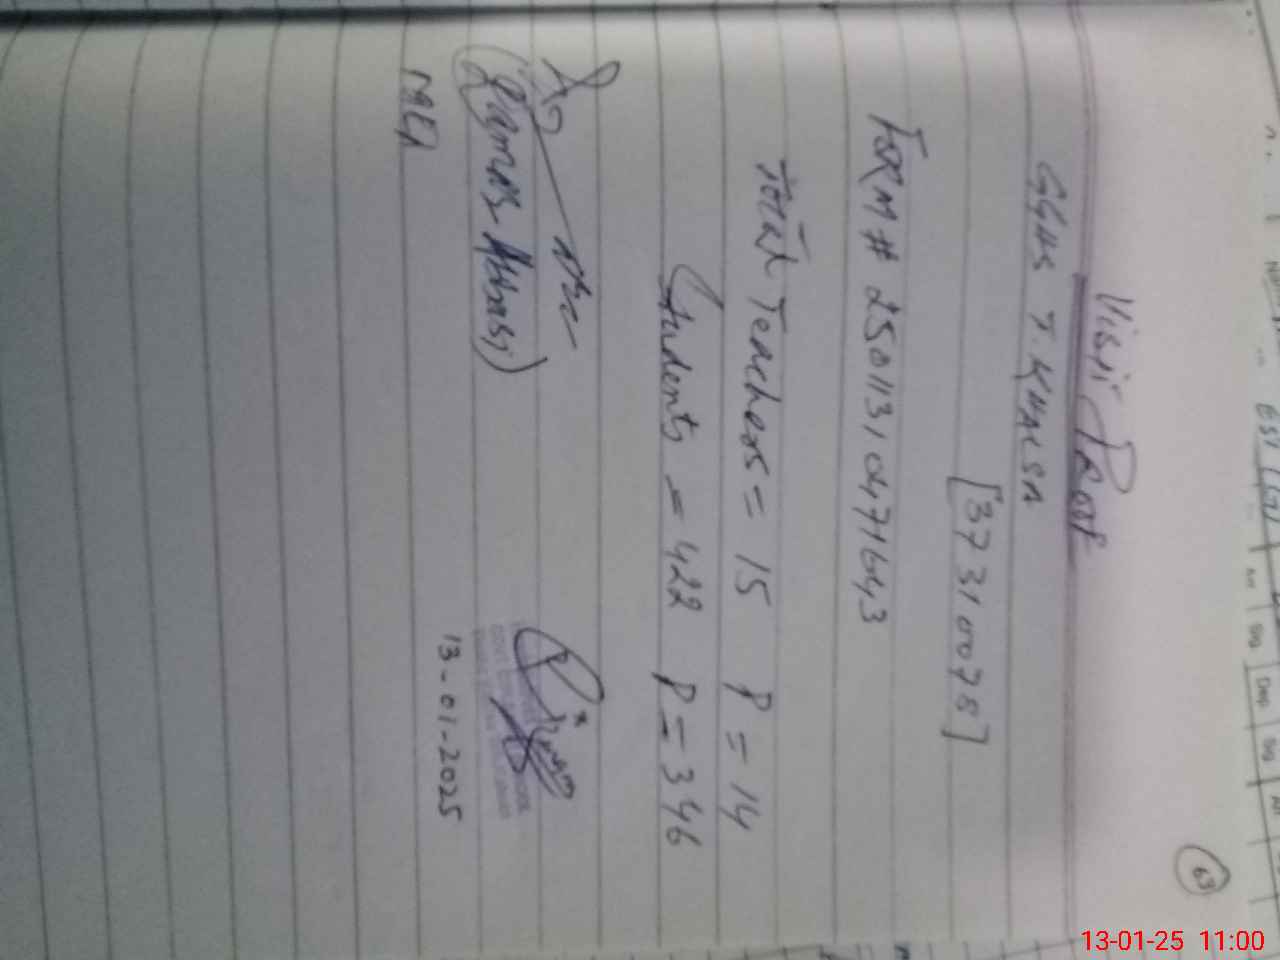 63
Visit Proof
GGHS T. KHALSA
[37310078]
FORM # 25011310471643
Total Teachers = 15 P = 14
Students = 422 P = 346
Abbasi)
MEA
13-01-2025
13-01-25 11:00